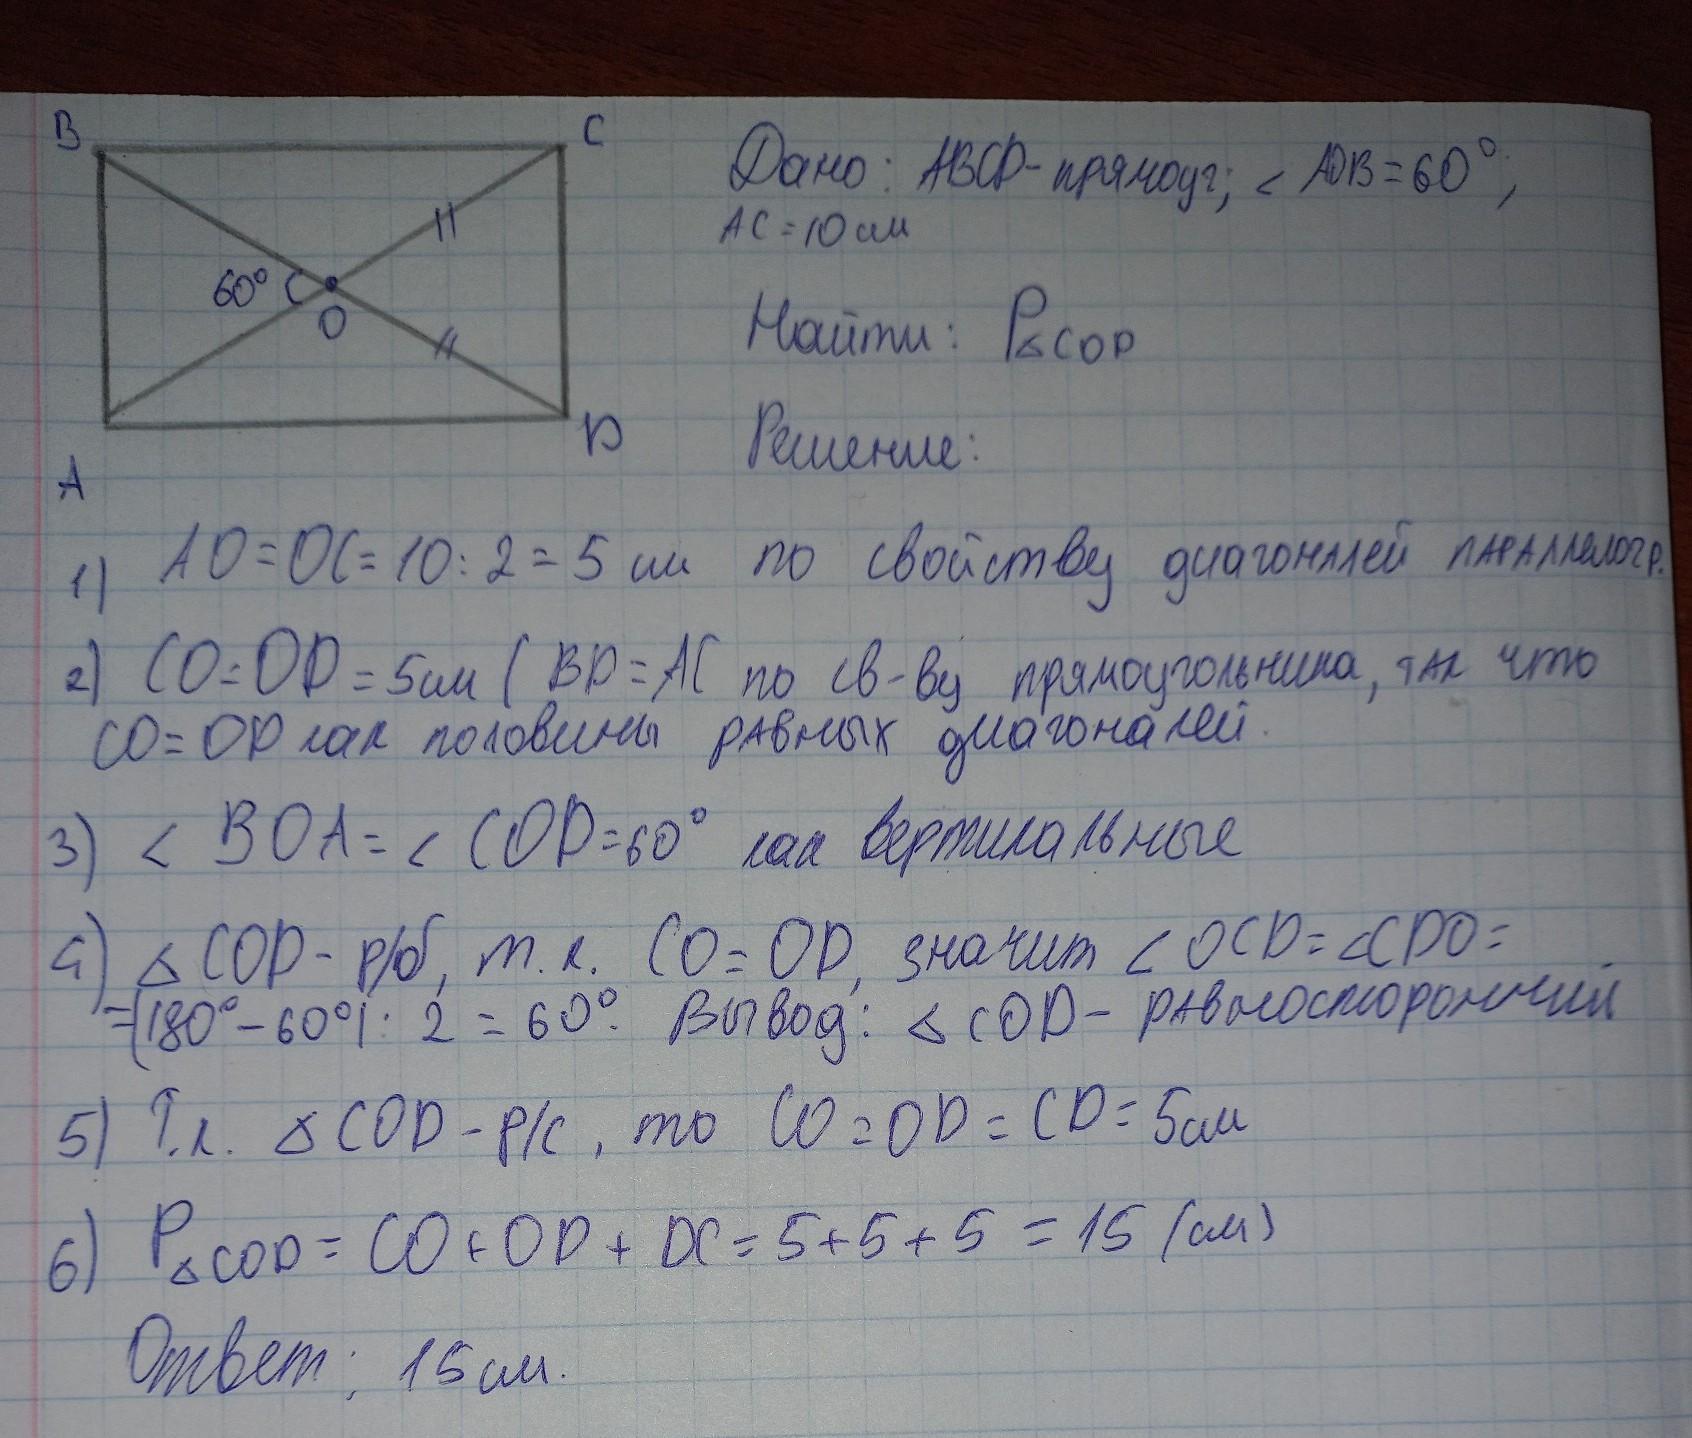 B C
60° O
A D
Дано: ABCD - прямоуг; < AOB = 60°;
AC = 10 см
Найти: P△COD
Решение:
1) AO = OC = 10 : 2 = 5 см по свойству диагоналей параллелогр.
2) CO = OD = 5 см ( BD = AC по св-ву прямоугольника, так что
CO = OD как половины равных диагоналей.
3) < BOA = < COD = 60° как вертикальные
4) △ COD - р/б, т.к. CO = OD, значит < OCD = < CDO =
= (180° - 60°) : 2 = 60°. Вывод: △ COD - равносторонний
5) Т.к. △ COD - р/с, то CO = OD = CD = 5 см
6) P△COD = CO + OD + DC = 5 + 5 + 5 = 15 (см)
Ответ: 15 см.